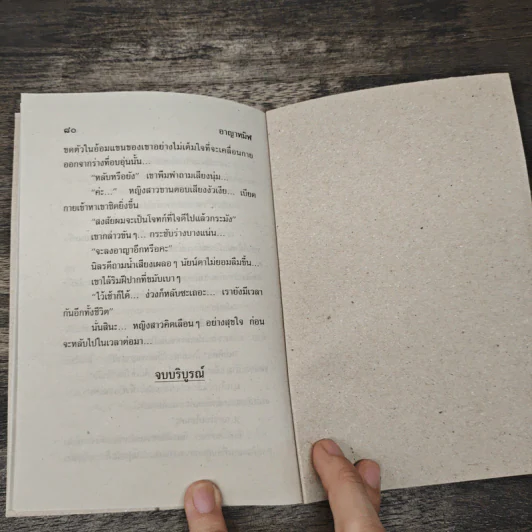 ๘๐ อาญาทมิฬ
ขดตัวในอ้อมแขนของเขาอย่างไม่เต็มใจที่จะเคลื่อนกาย
ออกจากร่างที่อบอุ่นนั้น...
“หลับหรือยัง” เขาพึมพำถามเสียงนุ่ม...
“ค่ะ...” หญิงสาวขานตอบเสียงงัวเงีย... เบียด
กายเข้าหาเขาชิดยิ่งขึ้น
“สงสัยผมจะเป็นโจทก์ที่ใจดีไปแล้วกระมัง”
เขากล่าวขัน ๆ... กระชับร่างบางแน่น...
“จะลงอาญาอีกหรือคะ”
นิสรคีถามน้ำเสียงเผลอ ๆ นัยน์ตาไม่ยอมลืมขึ้น...
เขาไล้ริมฝีปากที่ขมับเบา ๆ
“ไว้เช้าก็ได้... ง่วงก็หลับซะเถอะ... เรายังมีเวลา
กันอีกทั้งชีวิต”
นั่นสินะ... หญิงสาวคิดเลือน ๆ อย่างสุขใจ ก่อน
จะหลับไปในเวลาต่อมา...
จบบริบูรณ์